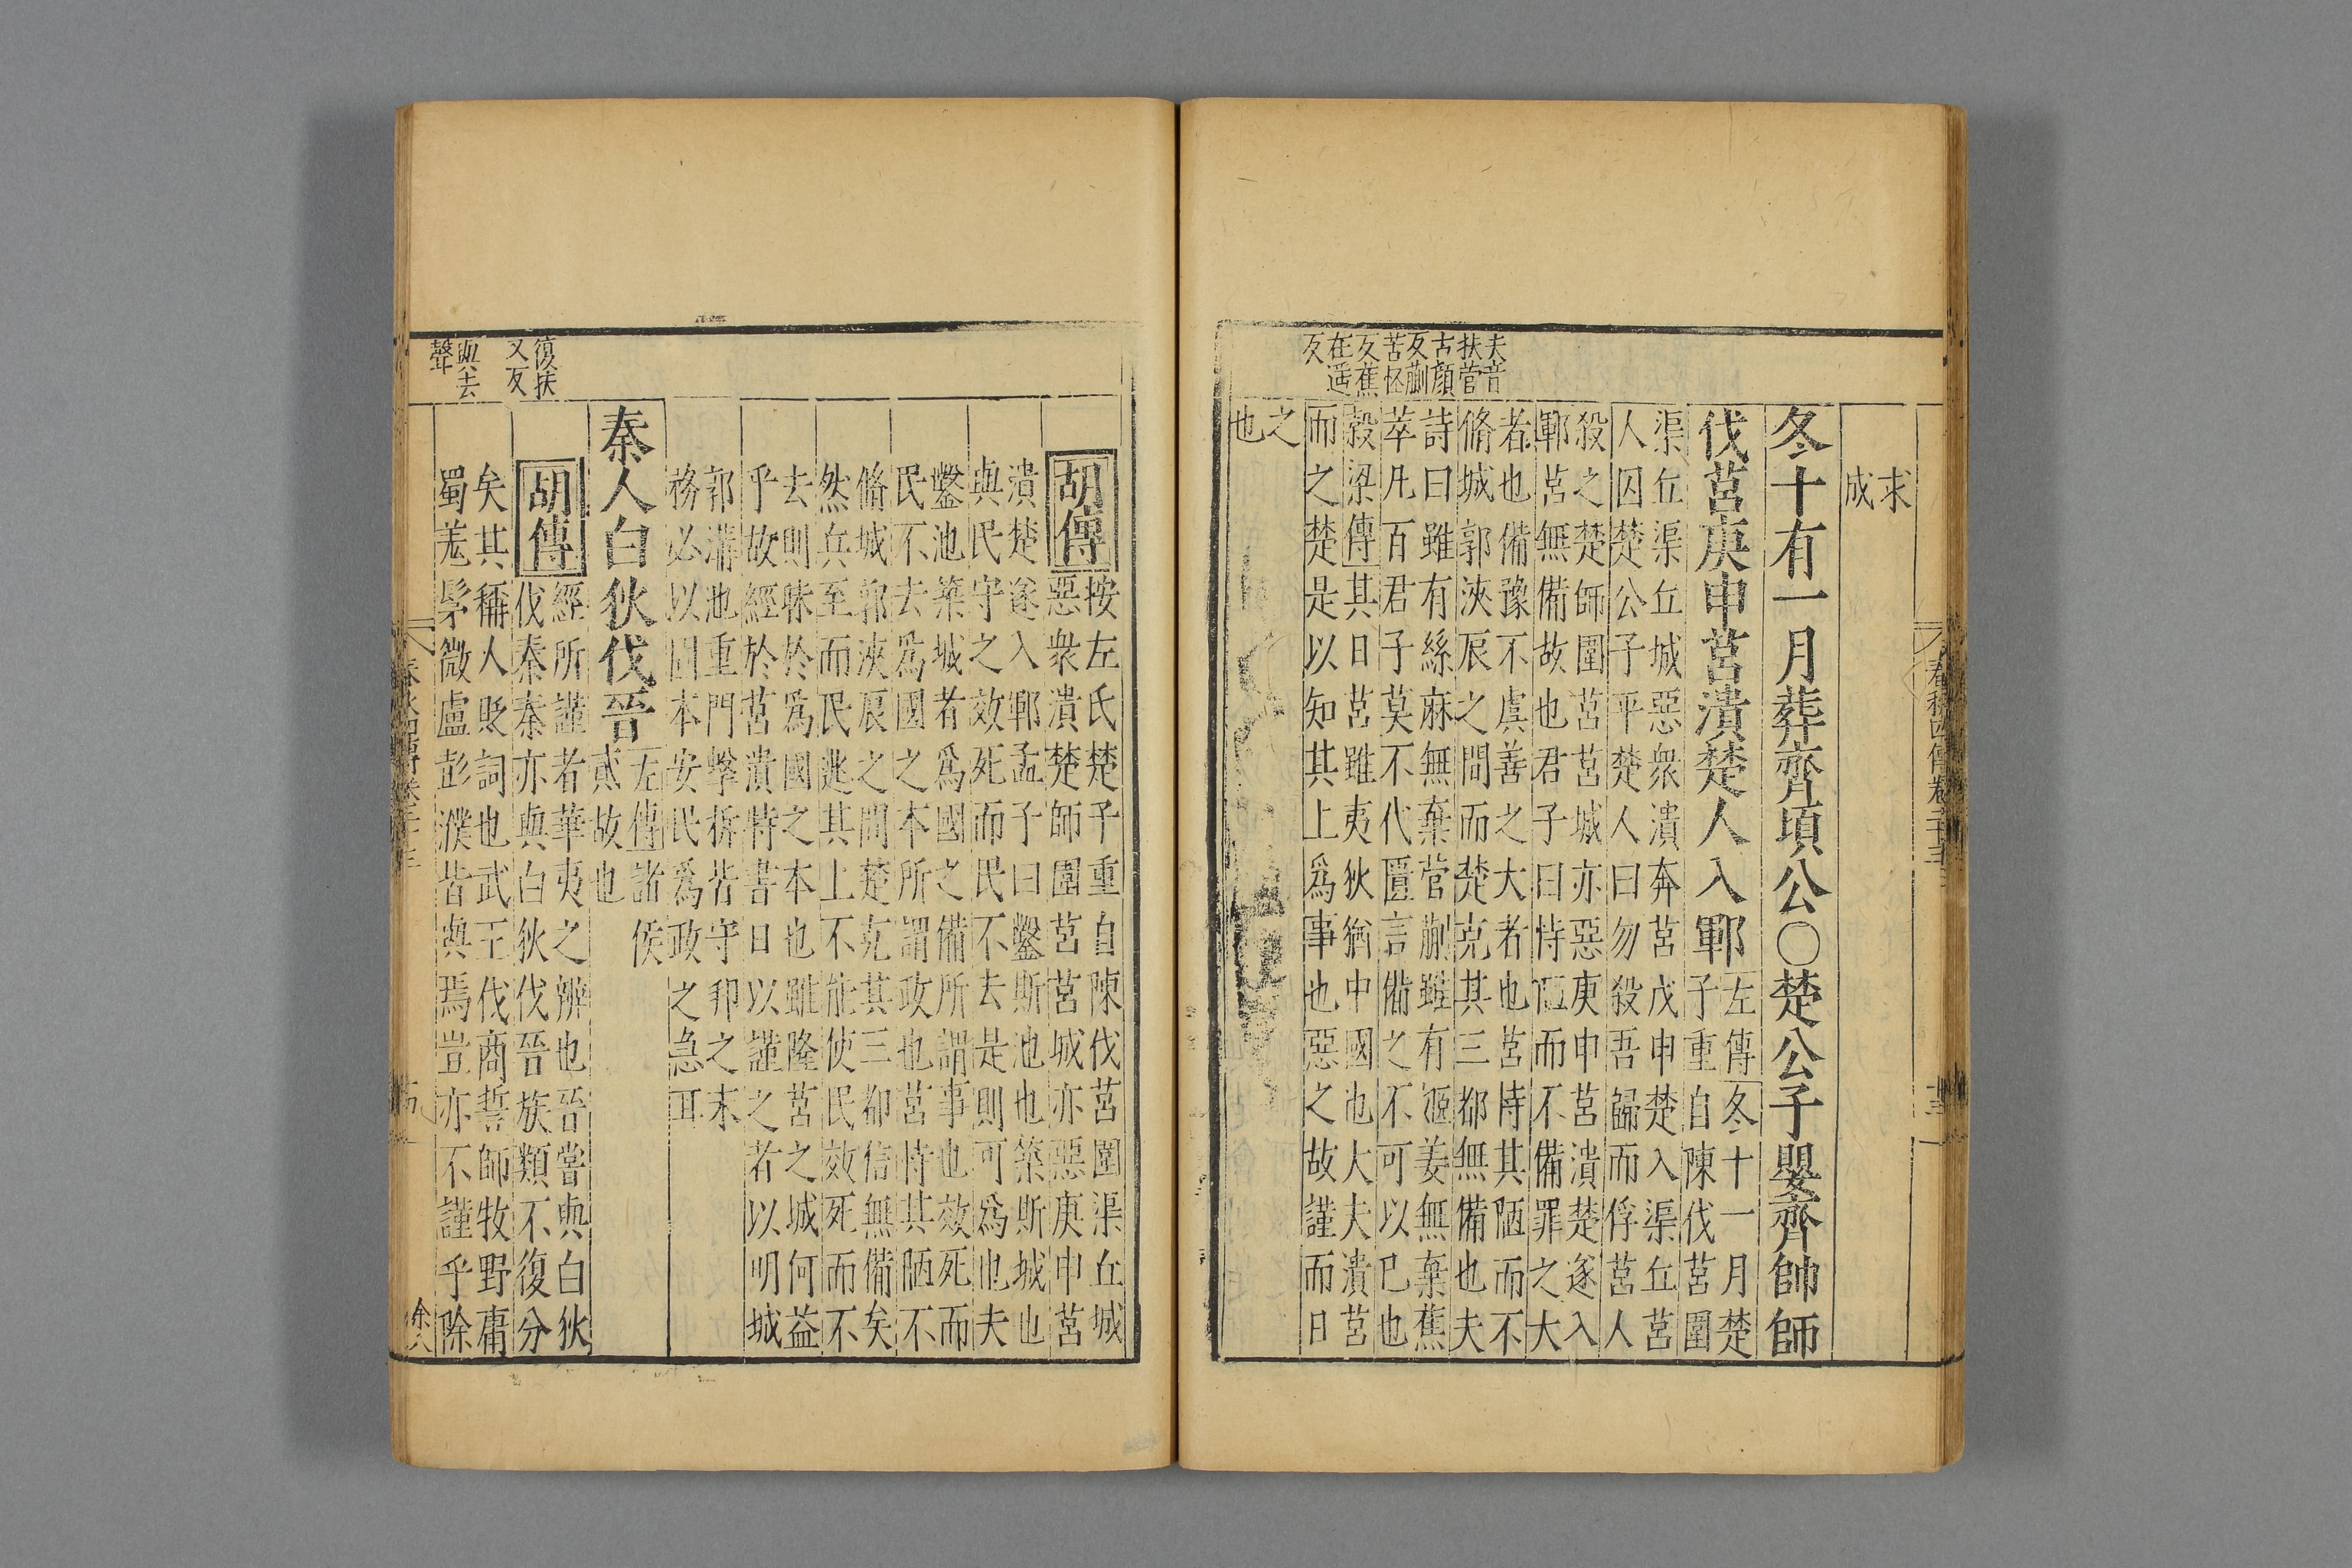 求
成
冬十有一月葬齊頃公○楚公子嬰齊帥師
伐莒庚申莒潰楚人入鄆
左傳冬十一月楚
子重自陳伐莒圍
渠丘渠丘城惡衆潰奔莒戊申楚入渠丘莒
人囚楚公子平楚人曰勿殺吾歸而俘莒人
殺之楚師圍莒莒城亦惡庚申莒潰楚遂入
鄆莒無備故也君子曰恃陋而不備罪之大
者也備豫不虞善之大者也莒恃其陋而不
脩城郭浹辰之間而楚克其三都無備也夫
詩曰雖有絲麻無棄菅蒯雖有姬姜無棄蕉
萃凡百君子莫不代匱言備之不可以已也
穀梁傳其日莒雖夷狄猶中國也大夫潰莒
而之楚是以知其上爲事也惡之故謹而日
之
也
夫音
扶菅
古顔
反蒯
苦怪
反蕉
在遥
反
春秋四傳卷二十三
胡傳
按左氏楚子重自陳伐莒圍渠丘城
惡衆潰楚師圍莒莒城亦惡庚申莒
潰楚遂入鄆孟子曰鑿斯池也築斯城也
與民守之效死而民不去是則可爲也夫
鑿池築城者爲國之備所謂事也效死而
民不去爲國之本所謂政也莒恃其陋不
脩城郭浹辰之間楚克其三都信無備矣
然兵至而民逃其上不能使民效死而不
去則昧於爲國之本也雖隆莒之城何益
乎故經於莒潰特書日以謹之者以明城
郭溝池重門擊柝皆守邦之末
務必以固本安民爲政之急耳
秦人白狄伐晉
左傳諸侯
貳故也
胡傳
經所謹者華夷之辨也晉嘗與白狄
伐秦秦亦與白狄伐晉族類不復分
矣其稱人貶詞也武王伐商誓師牧野庸
蜀羌髳微盧彭濮皆與焉豈亦不謹乎除
復扶
又反
與去
聲